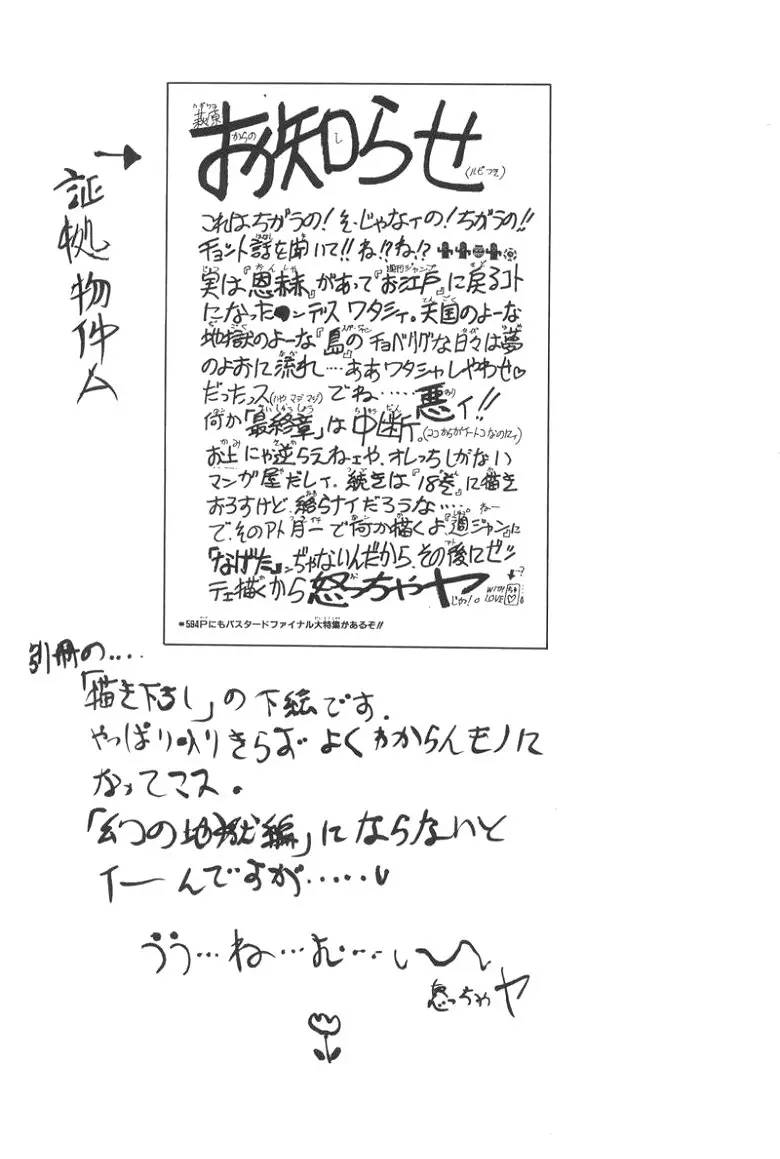 証拠物件A
萩原からのお知らせ
ハギワラ
し
(ルビつき)
これはちがうの!そ・じゃなィの!ちがうの!!
チョント話を聞いて!!ね!?ね!?
実は『恩赦』があって『お江戸』に戻るコト
になった ンデス ワタシィ。天国のよーな
地獄のよーな『島』の チョベリグな日々は夢
のよおに流れ…‥ああワタシャしやわせ♡
だったっス(ハャ マジ マジ)でね……悪ィ!!
何か「最終章」は中断。(ココからがイートコなのにィ)
お上にゃ逆らえねェや、オレっちしがない
マンガ屋だしィ。続きは『18巻』に描き
おろすけど、終らナイだろうな……
で、そのアト月一で何か描くよ。週ジャン』に
「なげた」ンぢゃないんだから、その後にゼッ
テェ描くから怒っちゃヤ じゃっ!。WITH LOVE
※594Pにもバスタードファイナル大特集があるぞ!!
別冊の‥‥
「描き下ろし」の下絵です.
やっぱり入りきらず よくわからんモノに
なってマス。
「幻の地獄編」にならないと
イーんですが……
うう…ね…む…ぃ〜
怒っちゃヤ